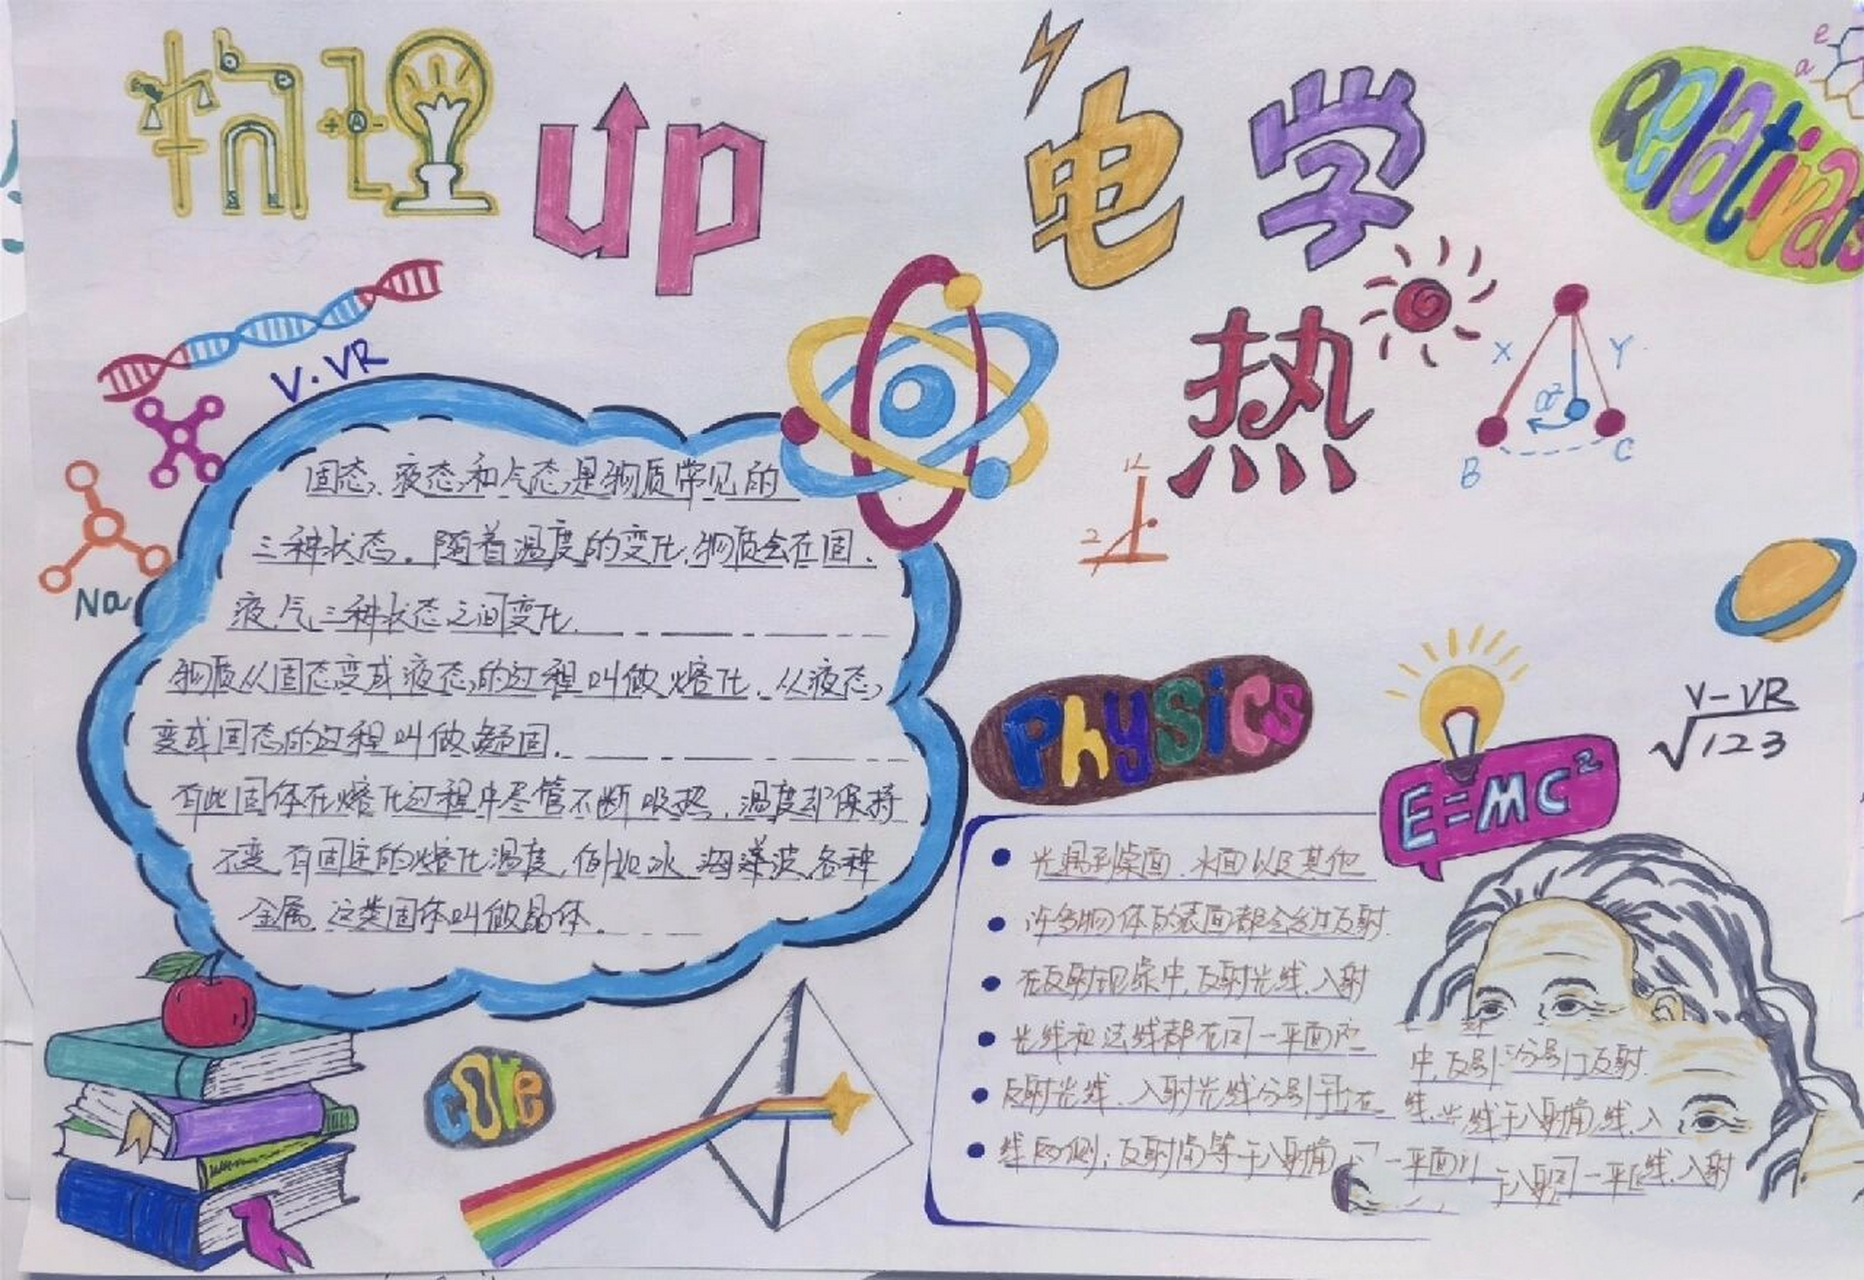 物理 up
电学
Relativa
e
a
热
V·VR
X
Y
B
C
Na
固态、液态和气态是物质常见的
三种状态。随着温度的变化,物质会在固、
液、气三种状态之间变化.
物质从固态变成液态的过程叫做熔化,从液态
变成固态的过程叫做凝固.
有些固体在熔化过程中尽管不断吸热,温度却保持
不变,有固定的熔化温度,例如冰、海波、各种
金属,这类固体叫做晶体.
Physics
E=MC²
V-VR
√123
光遇到桌面、水面以及其他
许多物体的表面都会发生反射.
在反射现象中,反射光线、入射
光线和法线都在同一平面内
反射光线、入射光线分别
线两侧;反射角等于入射角
中,反射
反射.
一平面
线、入射